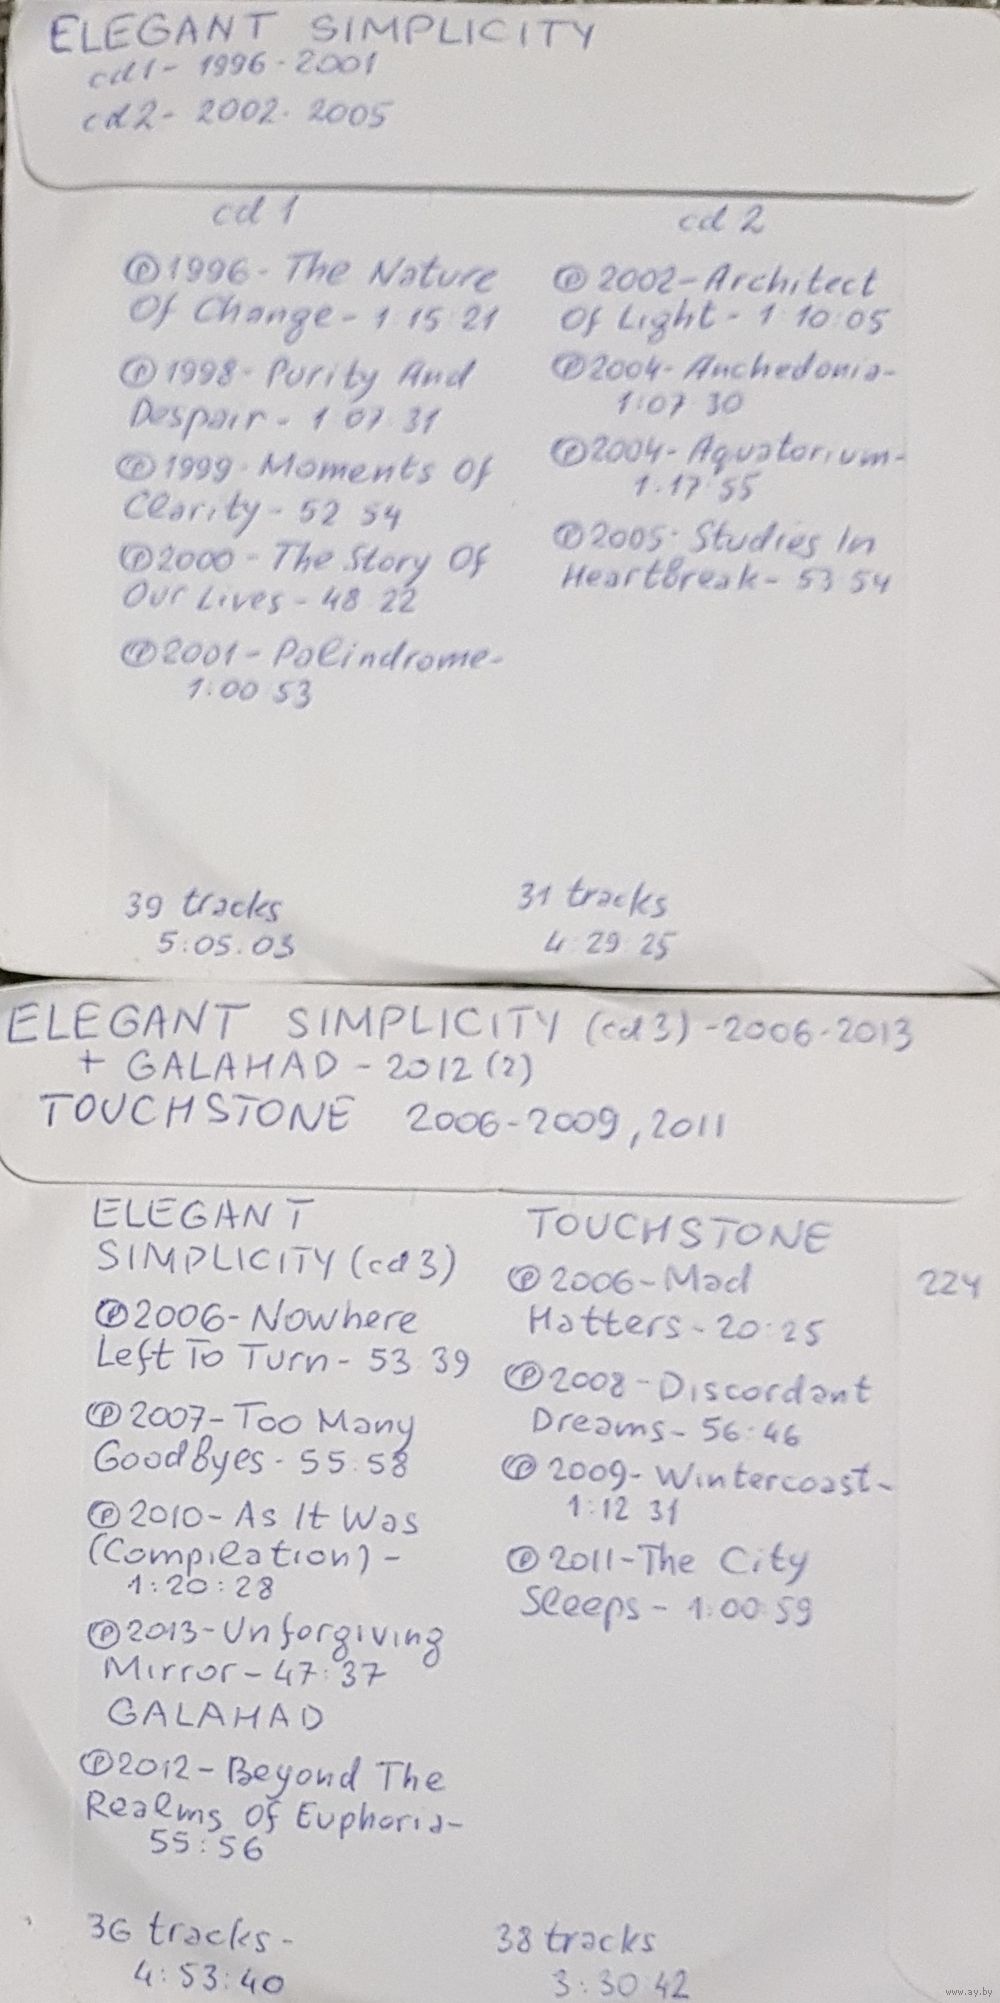 ELEGANT SIMPLICITY
cd1- 1996-2001
cd2- 2002-2005
cd 1
Ⓟ1996- The Nature
Of Change- 1:15:21
Ⓟ1998- Purity And
Despair- 1:07:31
Ⓟ1999- Moments Of
Clarity- 52:54
Ⓟ2000- The Story Of
Our Lives- 48:22
Ⓟ2001- Palindrome-
1:00:53
39 tracks
5:05:03
cd 2
Ⓟ2002-Architect
Of Light- 1:10:05
Ⓟ2004- Anchedonia-
1:07:30
Ⓟ2004-Aquatorium-
1:17:55
Ⓟ2005- Studies In
HeartBreak- 53:54
31 tracks
4:29:25
ELEGANT SIMPLICITY (cd3)-2006-2013
+ GALAHAD - 2012 (2)
TOUCHSTONE 2006-2009, 2011
ELEGANT
SIMPLICITY (cd3)
Ⓟ2006- Nowhere
Left To Turn- 53:39
Ⓟ2007-Too Many
GoodByes- 55:58
Ⓟ2010- As It Was
(Compilation) -
1:20:28
Ⓟ2013-Unforgiving
Mirror- 47:37
GALAHAD
Ⓟ2012- Beyond The
Realms Of Euphoria-
55:56
36 tracks-
4:53:40
TOUCHSTONE
Ⓟ2006-Mad
Hatters- 20:25
Ⓟ2008-Discordant
Dreams- 56:46
Ⓟ2009- Wintercoast-
1:12:31
Ⓟ2011-The City
Sleeps- 1:00:59
38 tracks
3:30:42
224
www.ay.by